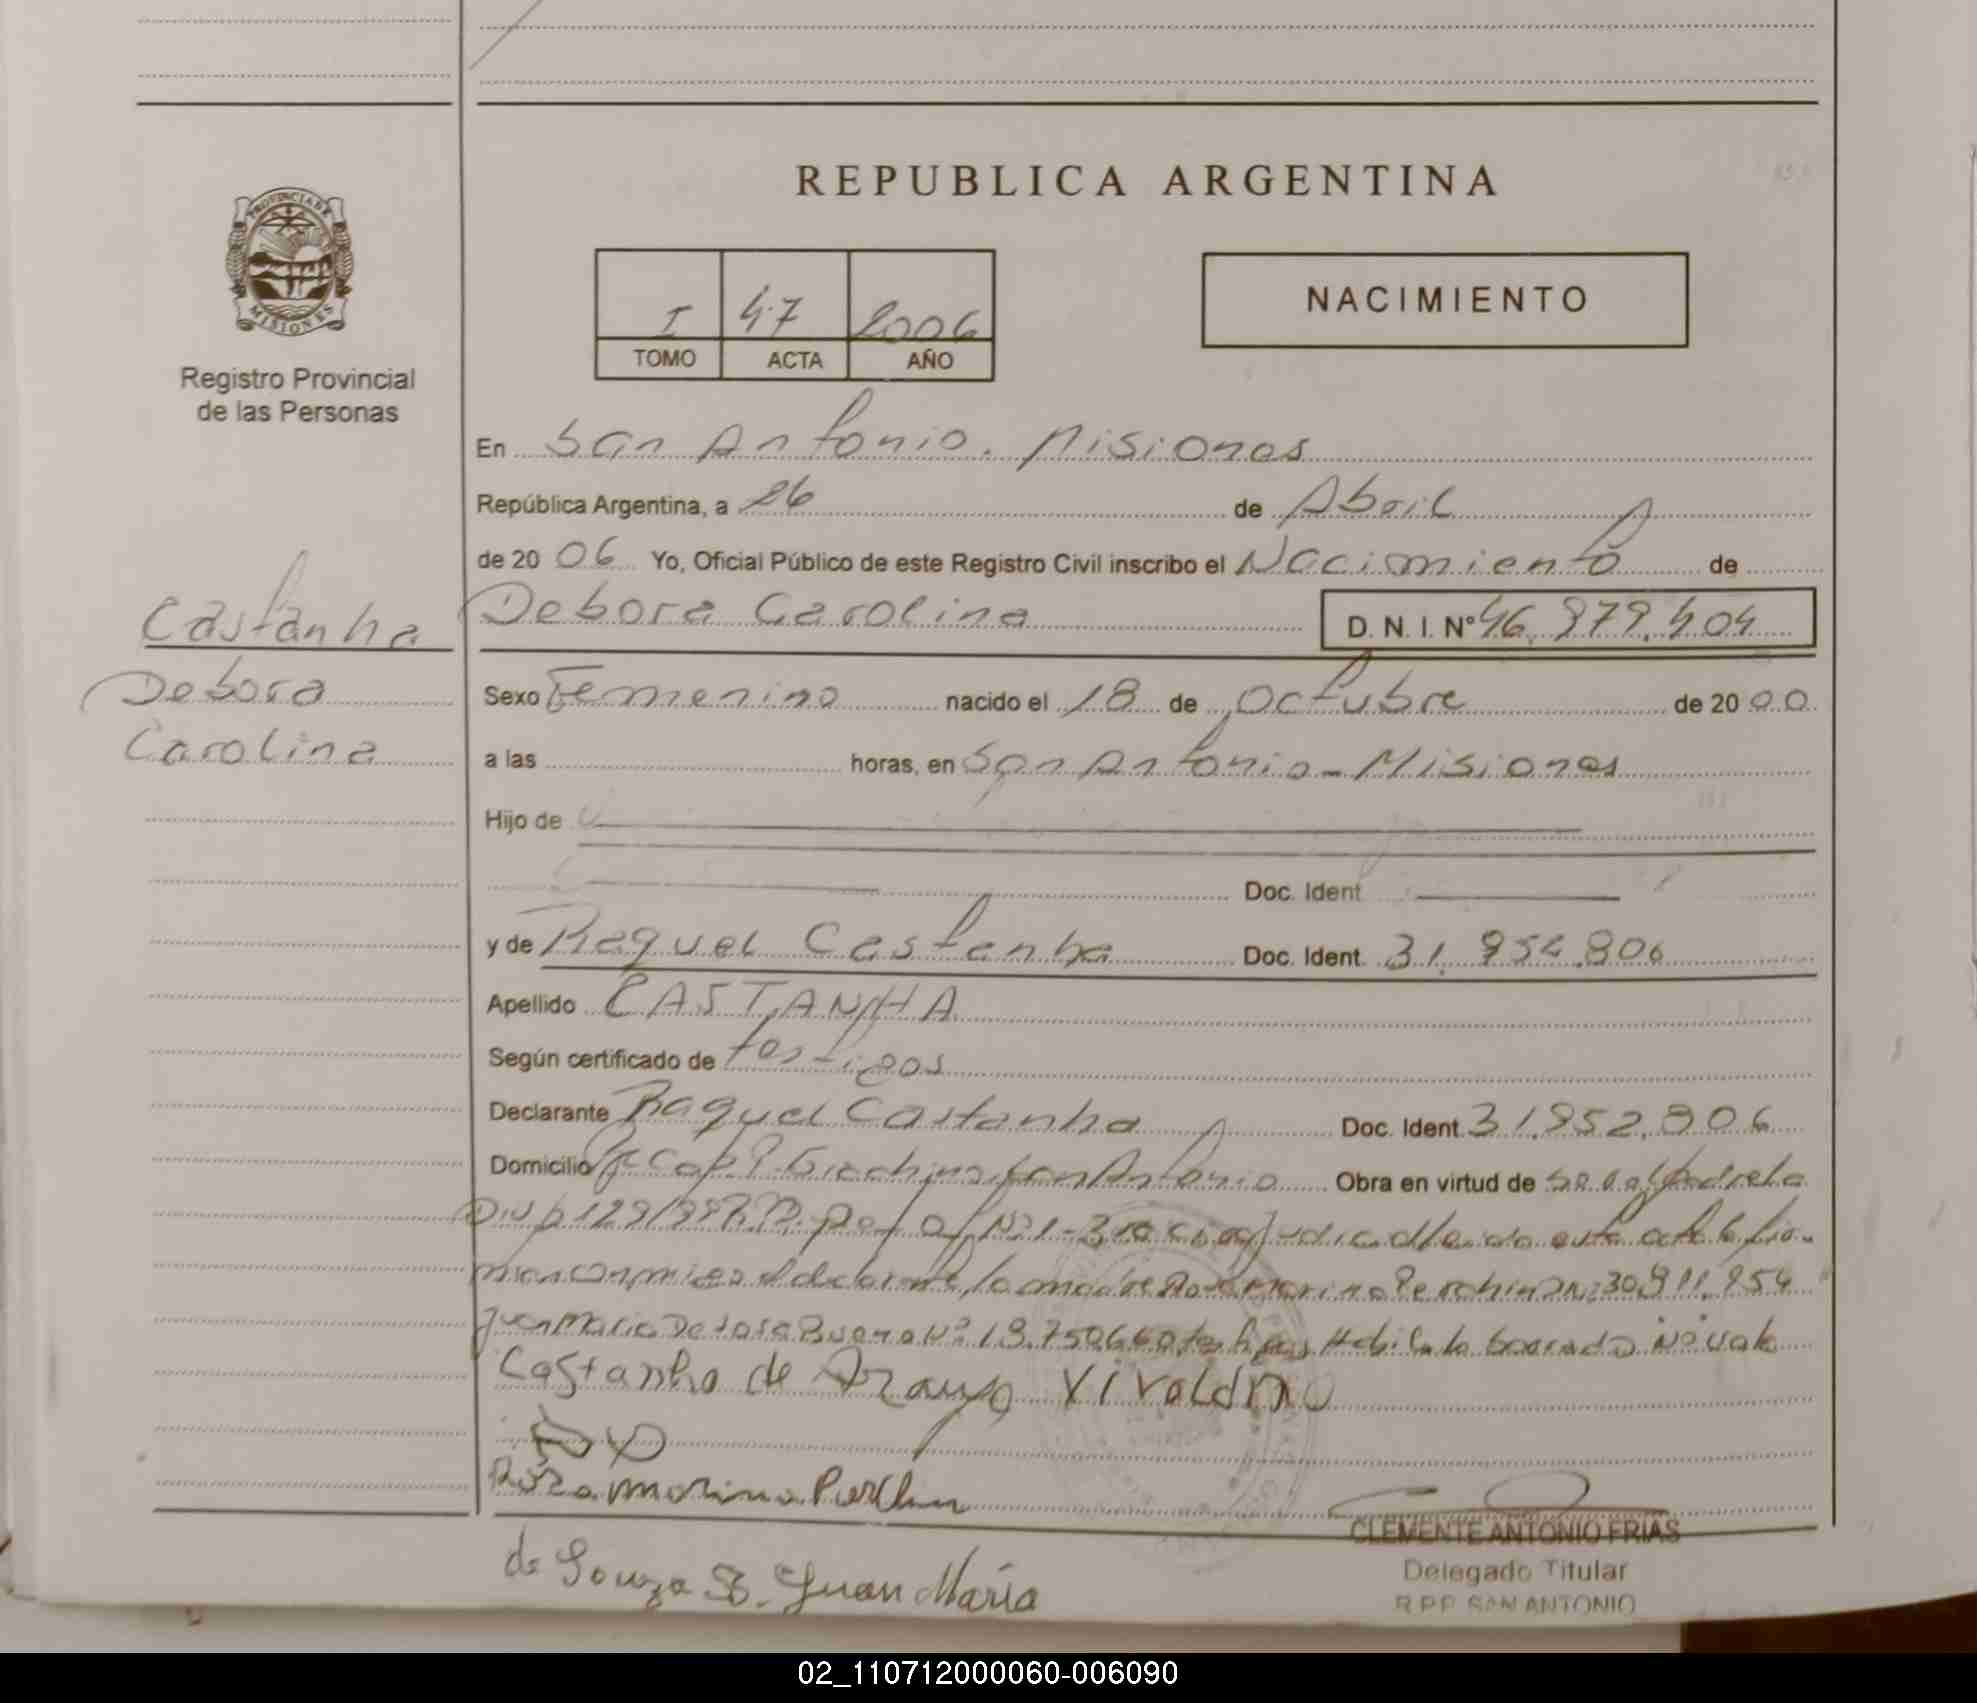 REPUBLICA ARGENTINA
PROVINCIA DE
MISIONES
Registro Provincial
de las Personas
I 47 2006
TOMO ACTA AÑO
NACIMIENTO
En San Antonio. Misiones
República Argentina, a 26 de Abril
de 20 06 Yo, Oficial Público de este Registro Civil inscribo el Nacimiento de
Castanha
Debora
Carolina
Debora Carolina D. N. I. Nº 46.979.404
Sexo Femenino nacido el 18 de Octubre de 20 00
a las horas, en San Antonio - Misiones
Hijo de
Doc. Ident
y de Raquel Castanha Doc. Ident. 31.954.806
Apellido CASTANHA
Según certificado de testigos
Declarante Raquel Castanha Doc. Ident. 31.952.806
Domicilio Cap. Giachino San Antonio Obra en virtud de
la madre Marina 30.911.954
Juan Maria Nº 18.750.660 testigos lo borrado No vale
Castanho de Araujo Vivaldino
Roza Marina
de Souza B. Juan María
CLEMENTE ANTONIO FRIAS
Delegado Titular
R.P.P. SAN ANTONIO
02_110712000060-006090